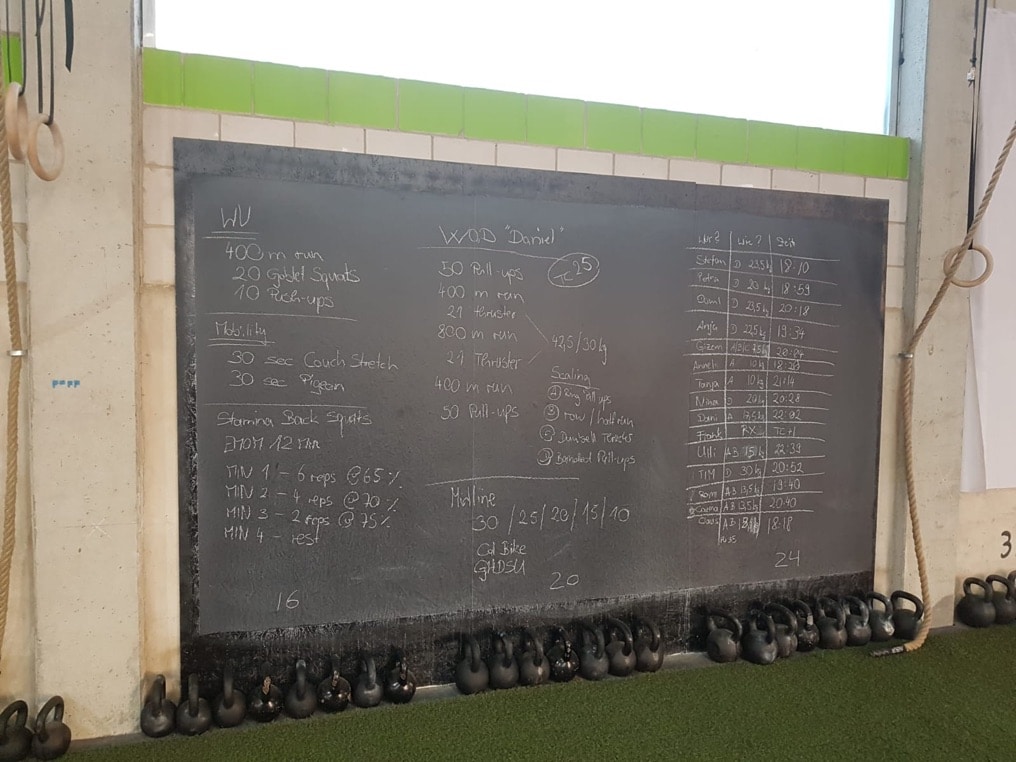 WU
400 m run
20 Goblet Squats
10 Push-ups
Mobility
30 sec Couch Stretch
30 sec Pigeon
Stamina Back Squats
EMOM 12 MIN
MIN 1 - 6 reps @ 65 %
MIN 2 - 4 reps @ 70 %
MIN 3 - 2 reps @ 75 %
MIN 4 - rest
16
WOD "Daniel"
TC 25
50 Pull-ups
400 m run
21 thruster
800 m run
21 Thruster
400 m run
50 Pull-ups
42,5/30 kg
Scaling
Ring Pull ups
row / half run
Dumbell Thruster
Banded Pull-ups
Metline
30 / 25 / 20 / 15 / 10
Cal Bike
GHDSU
20
Wer? Wie? Zeit
Stefan D 23,5 kg 18:10
Petra D 20 kg 18:59
D 23,5 kg 20:18
Anja D 22,5 kg 19:34
Gizem
A 10 kg
Tanja A 10 kg 21:14
Nina D 20 kg 20:28
Dani A 22:02
Frank RX TC+1
Ulli AB 15 kg 22:39
TIM D 30 kg 20:52
AB 13,5 kg 19:40
AB 13,5 kg 20:40
AB 18:18
24
3